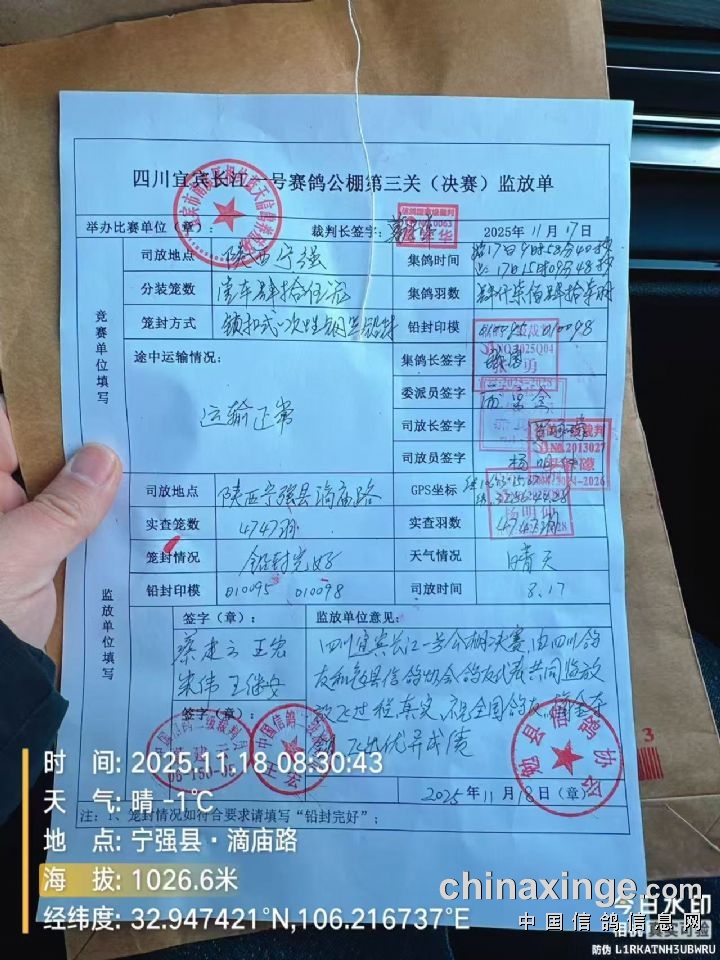 四川宜宾长江一号赛鸽公棚第三关（决赛）监放单
举办比赛单位（章）： 裁判长签字： 2025年11月17日
竞赛单位填写
司放地点 陕西宁强 集鸽时间 17日9时58分40秒
17日15时09分48秒
分装笼数 集鸽羽数 肆仟柒佰肆拾柒羽
笼封方式 锁扣式一次性钢丝铅封 铅封印模 010095 010098
途中运输情况： 集鸽长签字
运输正常 委派员签字
司放长签字
司放员签字
监放单位填写
司放地点 陕西宁强县滴庙路 GPS坐标
实查笼数 4747羽 实查羽数 4747羽
笼封情况 铅封完好 天气情况 晴天
铅封印模 010095 010098 司放时间 8.17
签字（章）： 监放单位意见：
蔡建云 王宏 四川宜宾长江一号公棚决赛，由四川鸽
王继安 友和勉县信鸽协会鸽友代表共同监放
签字（章）： 放飞过程真实，祝全国鸽友
飞出优异成绩
勉县信鸽协会
2025年11月18日（章）
注：1、笼封情况如符合要求请填写“铅封完好”；
3
时 间: 2025.11.18 08:30:43
天 气: 晴 -1℃
地 点: 宁强县·滴庙路
海 拔: 1026.6米
经纬度: 32.947421°N,106.216737°E
chinaxinge.com
中国信鸽信息网
今日水印
相机 真实可验
防伪 L1RKATNH3UBWRU